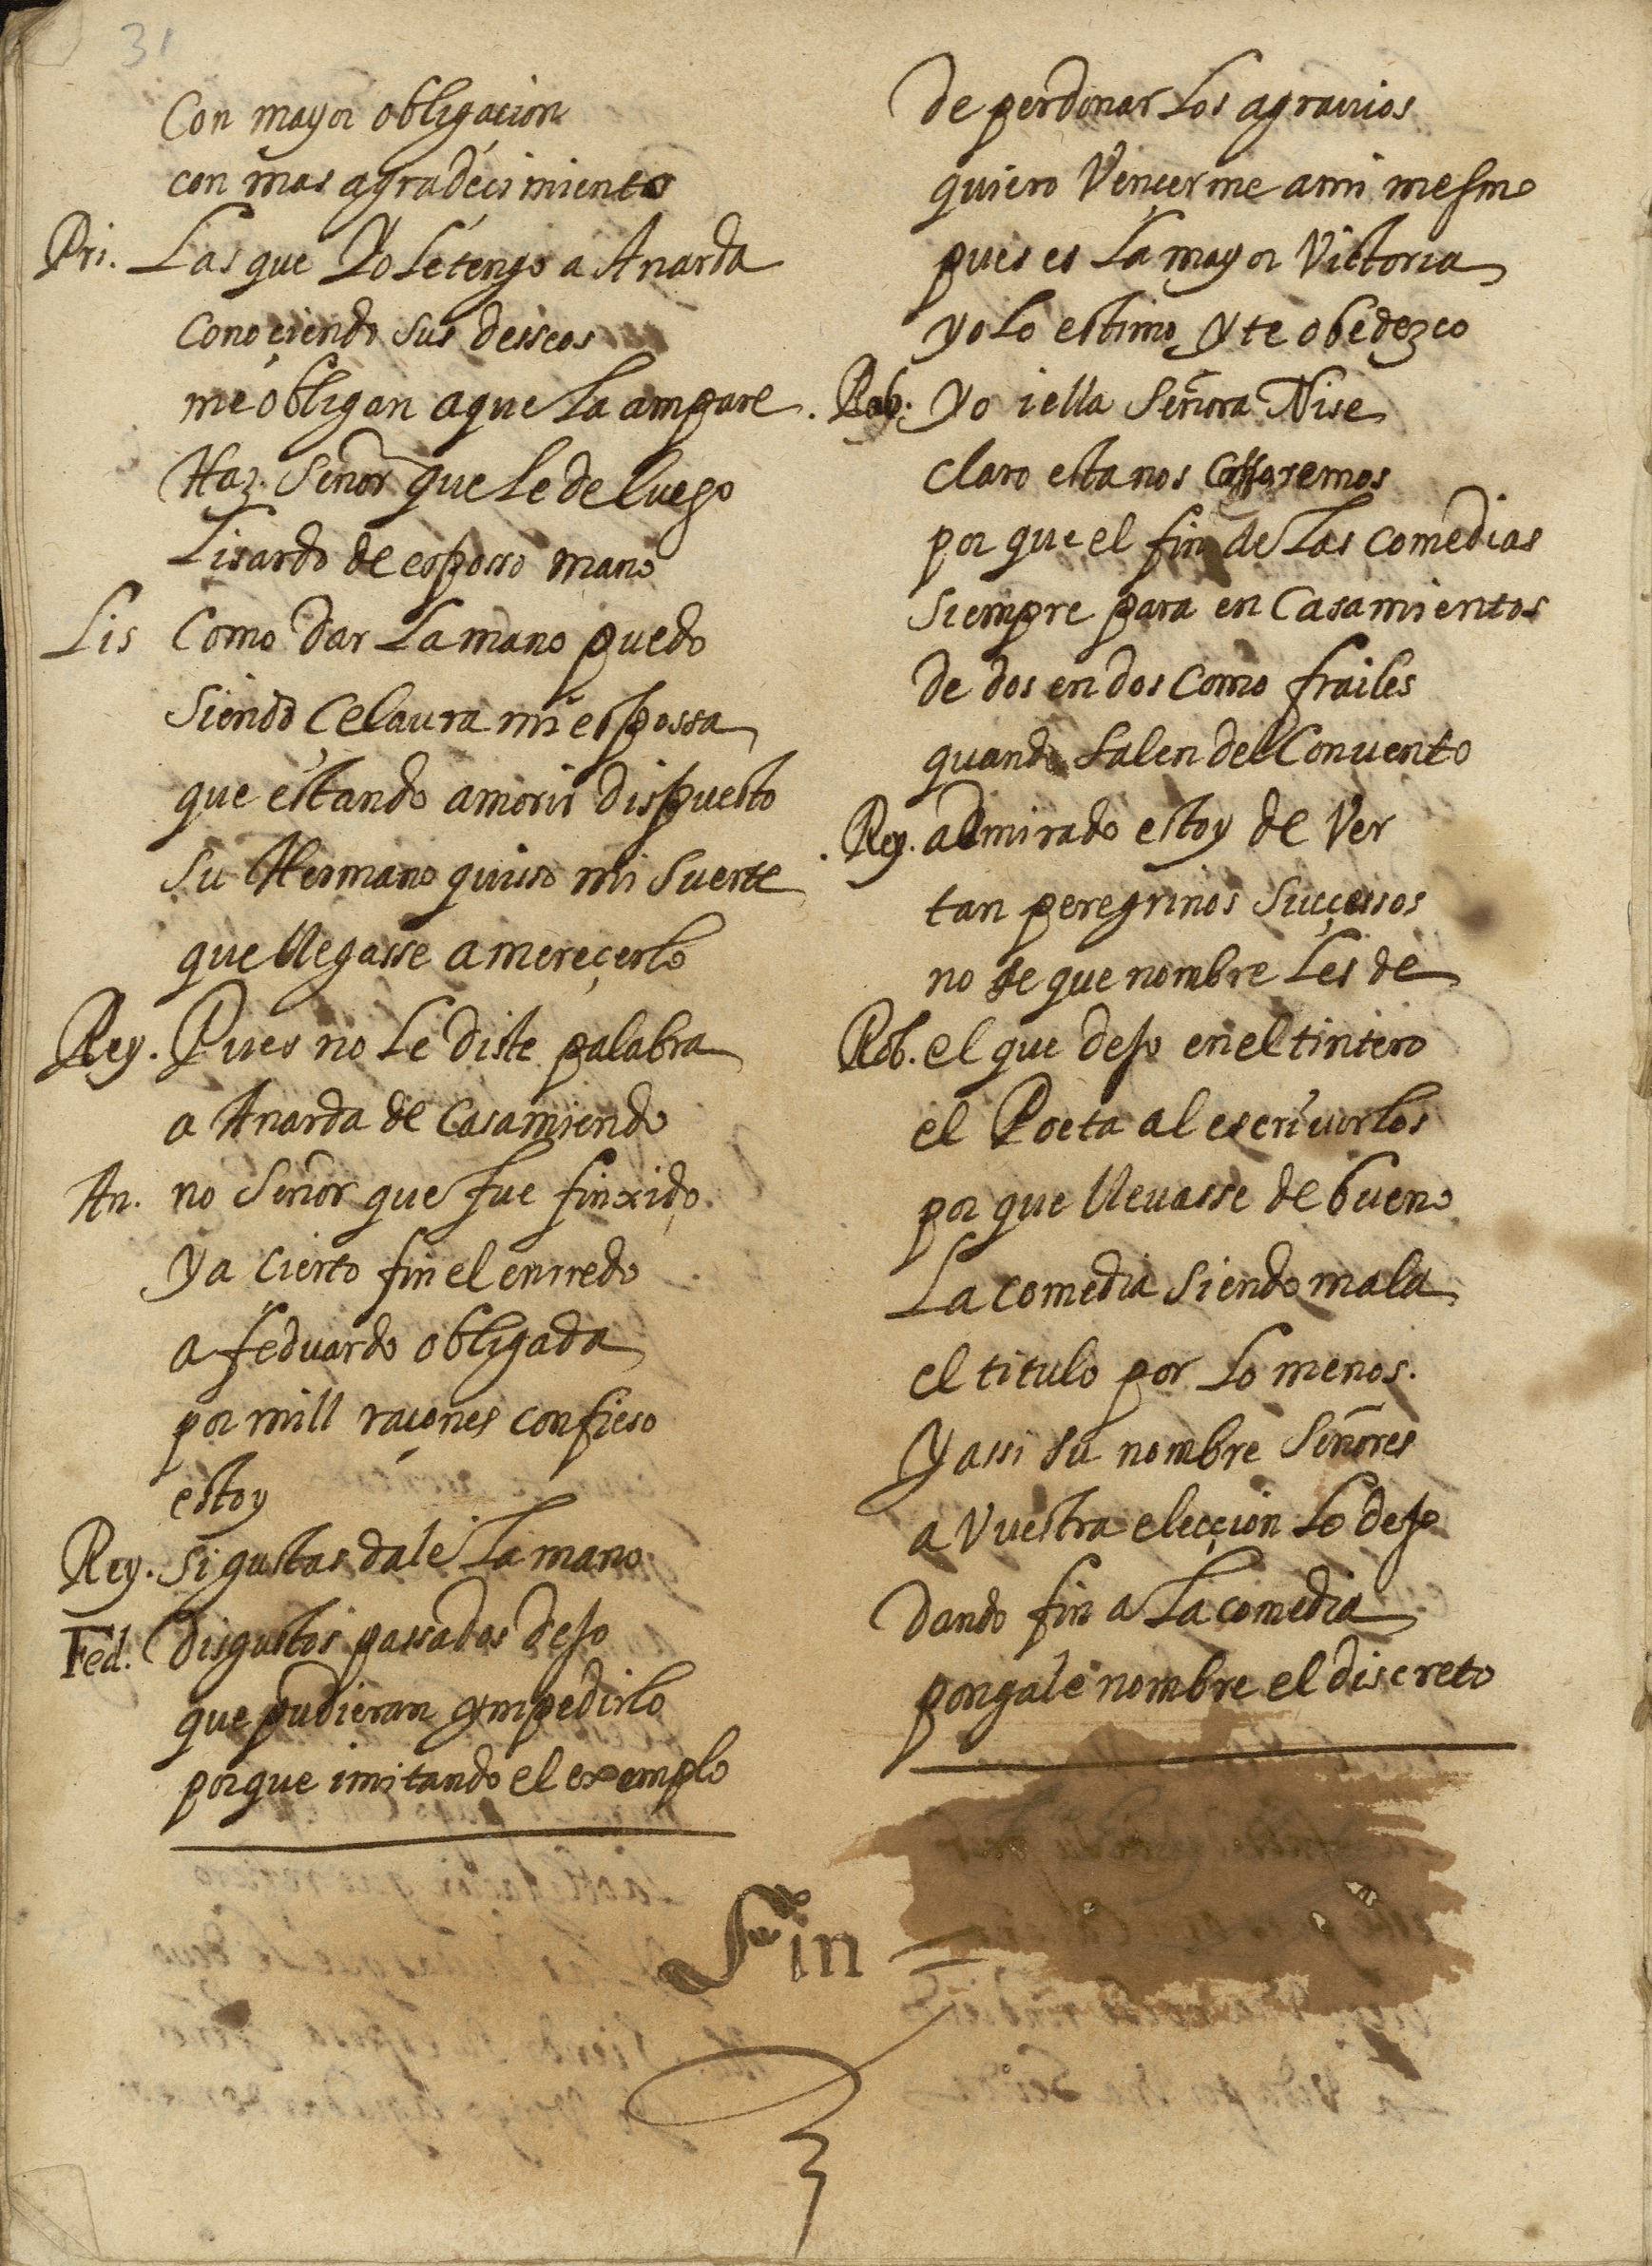 31
Con mayor obligacion
con mas agradecimiento
Pri. Las que Yo le tengo a Anarda
Conoçiendo sus desseos
me obligan a que la ampare.
Haz Señor que le de luego
Lisardo de esposso mano
Lis Como dar la mano puedo
Siendo Celaura mi espossa
que estando a morir dispuesto
Su Hermano quisso mi suerte
que llegasse a mereçerlo
Rey. Pues no le diste palabra
a Anarda de Casamiendo
An. no Señor que fue finxido
ya cierto fin el enrredo
a feduardo obligada
por mill raçones confieso
estoy
Rey. Si gustas dale la mano
Fed. Disgustos passados dejo
que pudieran ympedirlo
porque imitando el exemplo
de perdonar los agrauios
quiero Vençerme a mi mesmo
pues es la mayor Victoria
yo lo estimo y te obedezco
Rob. Yo i ella Señora Nise
claro esta nos cassaremos
por que el fin de las comedias
Siempre para en Casamientos
de dos en dos como frailes
quando salen del Conuento
Rey. admirado estoy de Ver
tan peregrinos Suççessos
no se que nombre les de
Rob. el que dejo en el tintero
el Poeta al escriuirlos
por que lleuasse de bueno
La comedia siendo mala
el titulo por lo menos.
Y assi su nombre Señores
a Vuestra elecçion lo dejo
Dando fin a la comedia
pongale nombre el discreto
Fin